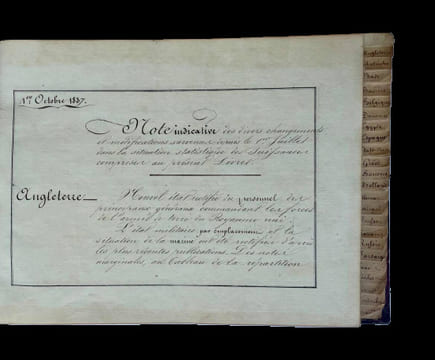 1er Octobre 1837.
Note indicative des divers changements
et modifications survenus depuis le 1er Juillet
dans la situation statistique des Puissances
comprises au présent Livret.
Angleterre.
Nouvel état rectifié du personnel des
principaux généraux commandant les forces
de l'armée de terre du Royaume uni.
L'état militaire par Emplacement et la
situation de la marine ont été rectifiés d'après
les plus récentes publications. Des notes
marginales, au Tableau de la répartition
Angleterre
Bade
Belgique
Espagne
Grèce
Hollande